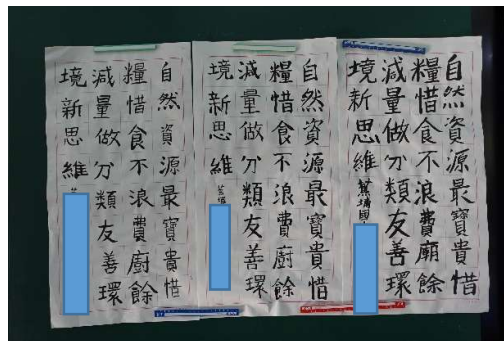 自然資源最寶貴惜
糧惜食不浪費廟餘
減量做分類友善環
境新思維
自然資源最寶貴惜
糧惜食不浪費廚餘
減量做分類友善環
境新思維
自然資源最寶貴惜
糧惜食不浪費廚餘
減量做分類友善環
境新思維